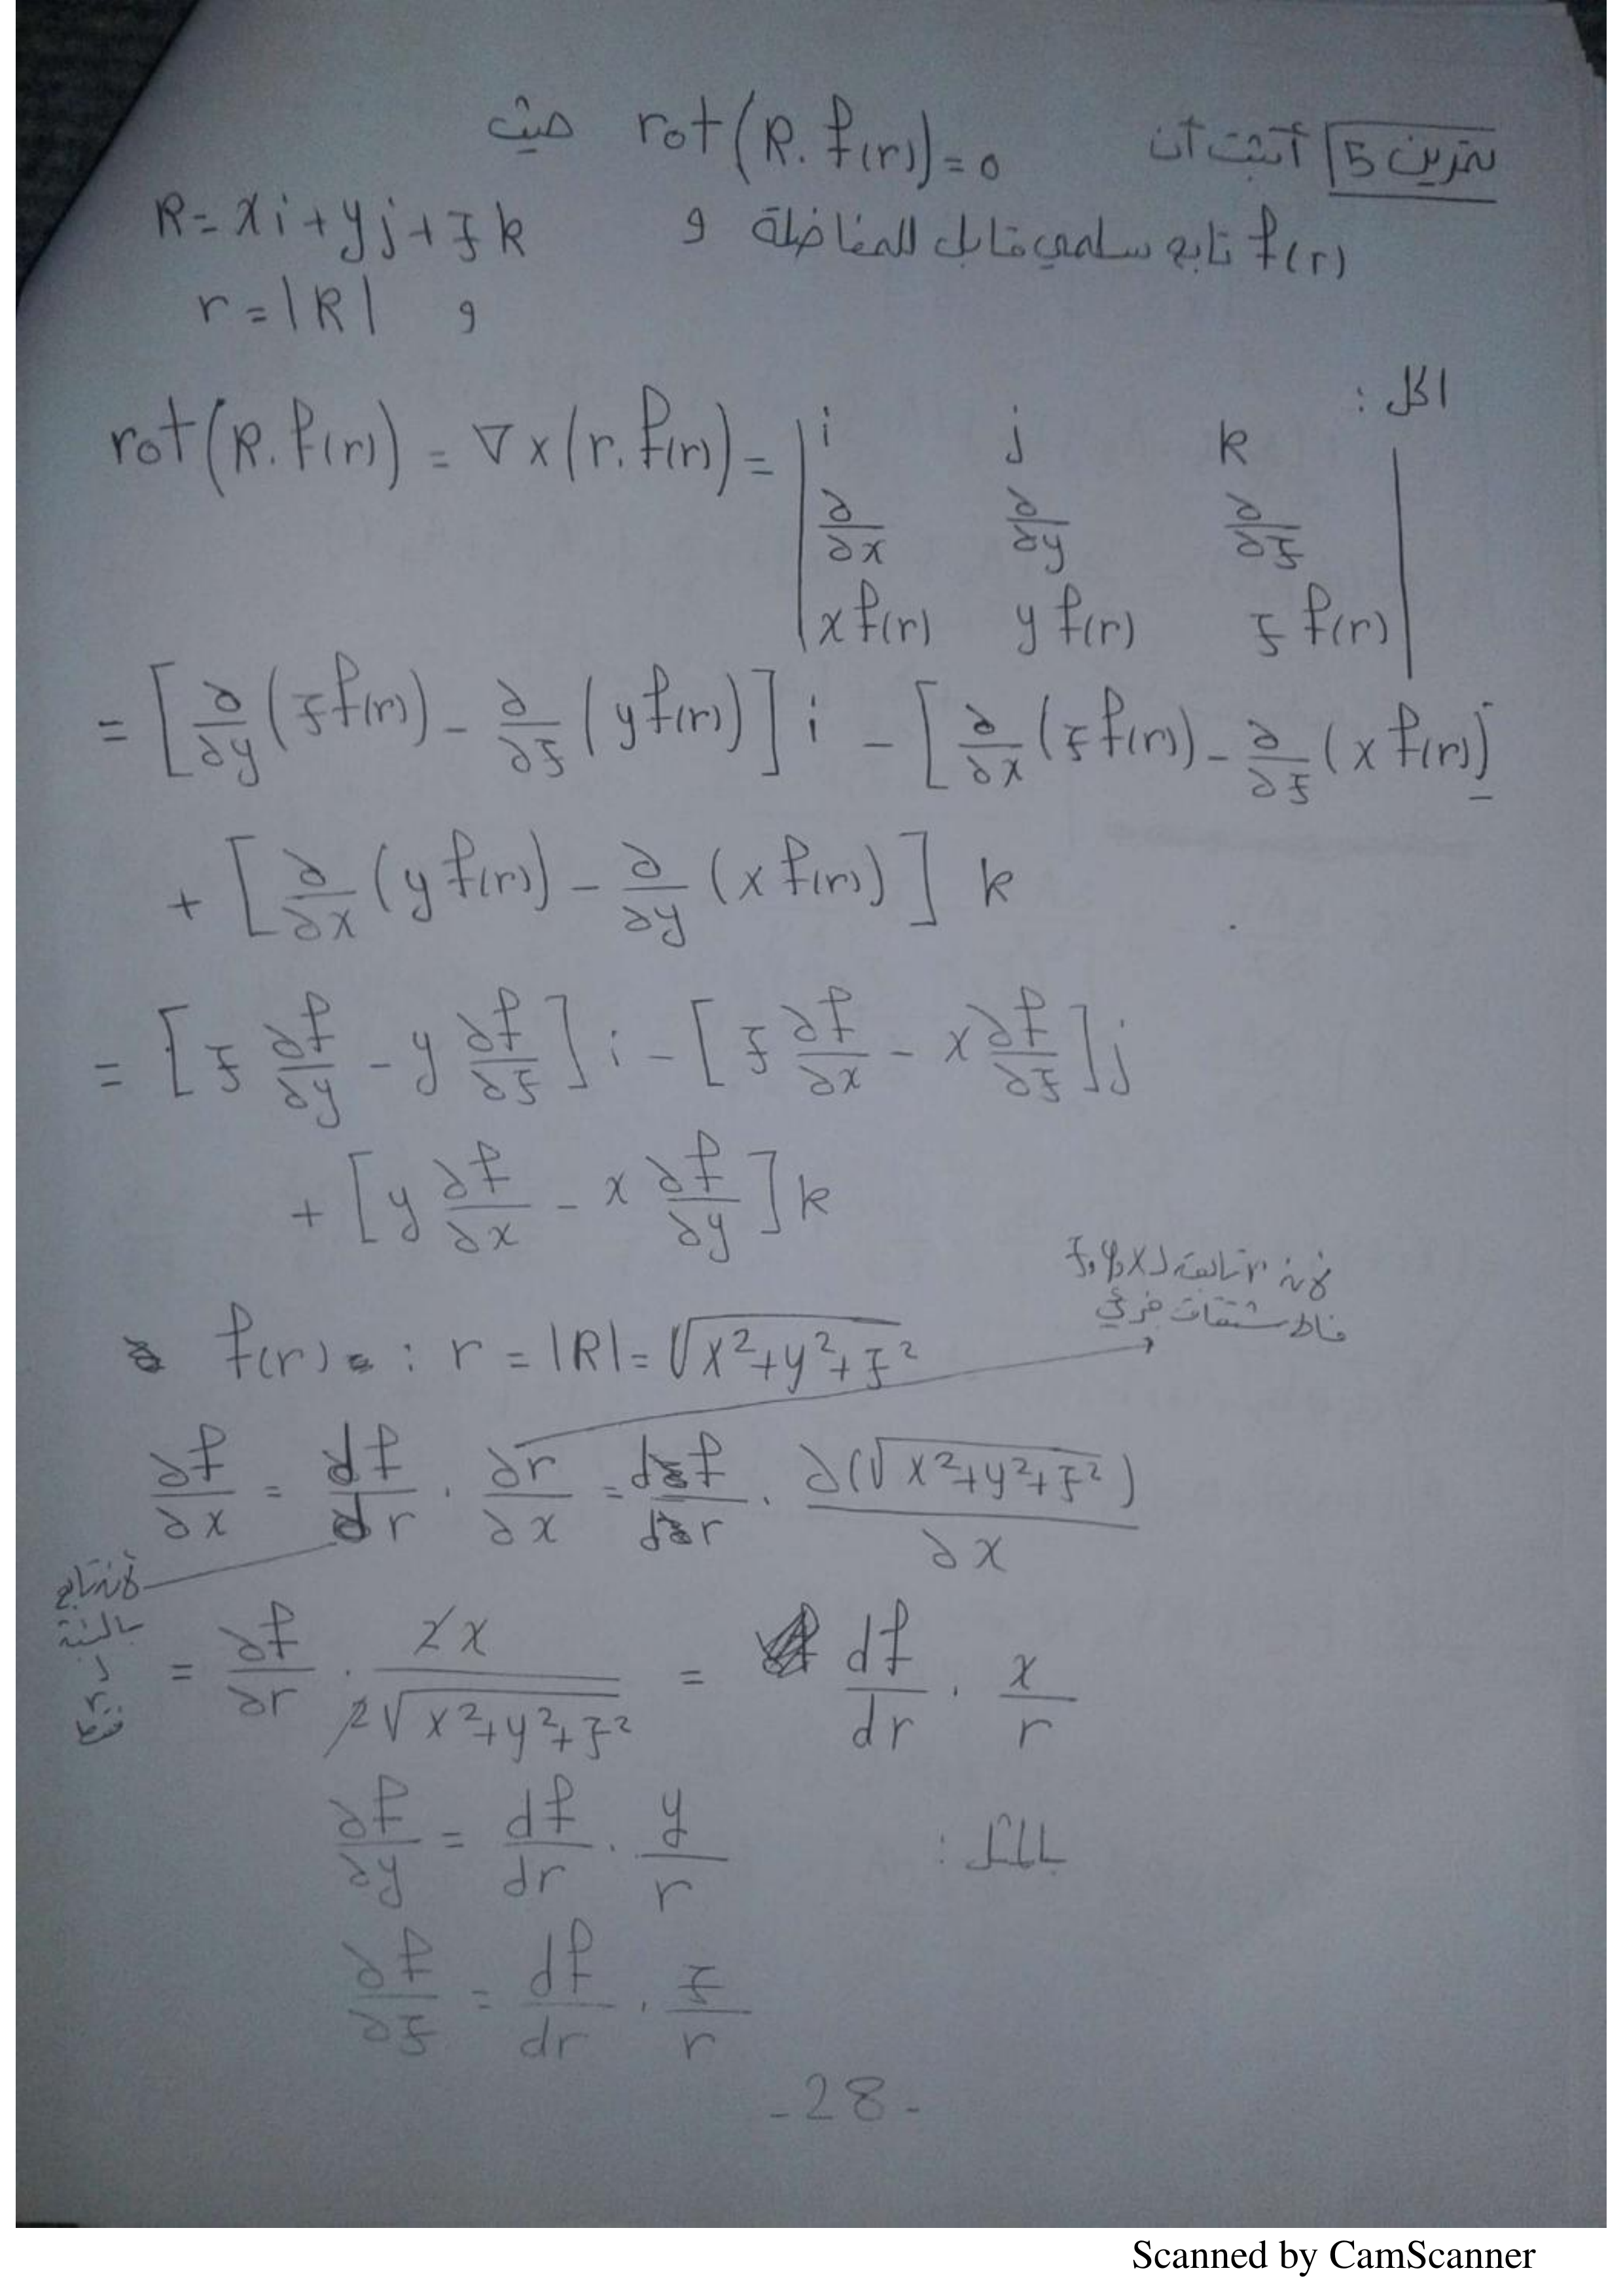 تمرين 5 أثبت أن rot(R.f(r))=0 حيث
f(r) تابع سلمي قابل للمفاضلة و R=xi+yj+zk
و r=|R|
الحل :
rot(R.f(r)) = ∇×(r.f(r)) = | i j k |
| ∂/∂x ∂/∂y ∂/∂z |
| x f(r) y f(r) z f(r) |
= [∂/∂y (z f(r)) - ∂/∂z (y f(r))] i - [∂/∂x (z f(r)) - ∂/∂z (x f(r))] j
+ [∂/∂x (y f(r)) - ∂/∂y (x f(r))] k
= [z ∂f/∂y - y ∂f/∂z] i - [z ∂f/∂x - x ∂f/∂z] j
+ [y ∂f/∂x - x ∂f/∂y] k
لأنه r تابعة لـ x,y,z
مشتقات جزئي
f(r) : r = |R| = √(x²+y²+z²)
∂f/∂x = df/dr . ∂r/∂x = df/dr . ∂(√(x²+y²+z²))/∂x
لأنه تابع
بالنسبة
لـ
r
فقط
= ∂f/∂r . 2x/(2√(x²+y²+z²)) = df/dr . x/r
بالمثل : ∂f/∂y = df/dr . y/r
∂f/∂z = df/dr . z/r
-28-
Scanned by CamScanner